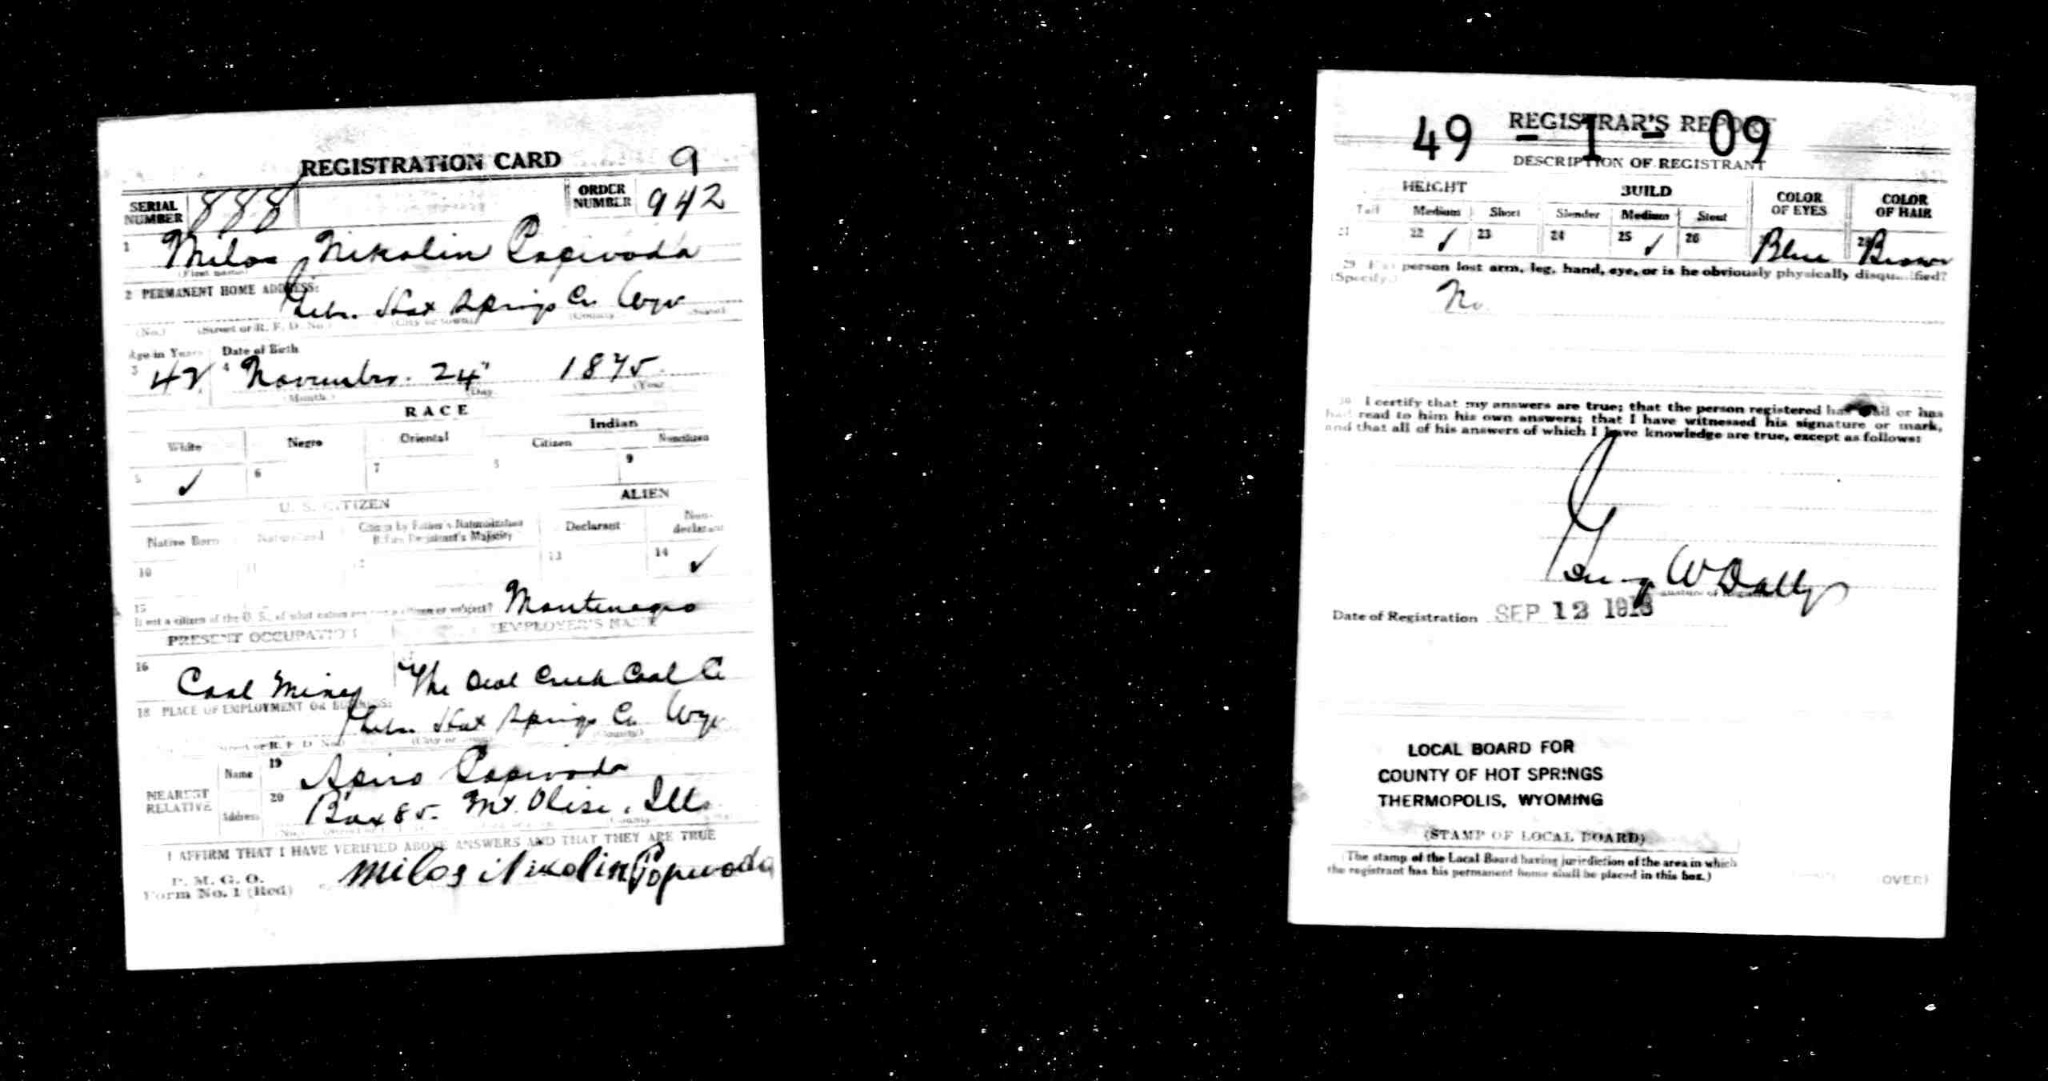 REGISTRATION CARD 9
SERIAL NUMBER 888 ORDER NUMBER 942
1 Milos Nikolin Popivoda
(First name)
2 PERMANENT HOME ADDRESS:
Gebo Hot Springs Co Wyo
(No.) (Street or R. F. D. No.) (City or town) (County) (State)
Age in Years Date of Birth
3 42 4 November 24" 1875
(Month) (Day) (Year
RACE
White Negro Oriental Indian
Citizen Noncitizen
5 ✓ 6 7 8 9
U. S. CITIZEN ALIEN
Native Born Naturalized Citizen by Father's Naturalization Before Registrant's Majority Declarant Non-declarant
10 11 12 13 14 ✓
15 If not a citizen of the U. S., of what nation are you a citizen or subject? Montenegro
PRESENT OCCUPATION EMPLOYER'S NAME
16 Coal Miner The Owl Creek Coal Co
18 PLACE OF EMPLOYMENT OR BUSINESS:
Gebo Hot Springs Co Wyo
(Street or R. F. D. No.) (City or town) (County)
NEAREST RELATIVE Name 19 Spiro Popivoda
Address 20 Box 85 Mt. Olive, Ill
I AFFIRM THAT I HAVE VERIFIED ABOVE ANSWERS AND THAT THEY ARE TRUE
P. M. G. O.
Form No. 1 (Red) Milos Nikolin Popivoda
REGISTRAR'S REPORT
49 - 1 - 09
DESCRIPTION OF REGISTRANT
HEIGHT BUILD COLOR OF EYES COLOR OF HAIR
Tall Medium Short Slender Medium Stout
21 22 ✓ 23 24 25 ✓ 26 Blue 28 Brown
29 Has person lost arm, leg, hand, eye, or is he obviously physically disqualified?
(Specify.) No
30 I certify that my answers are true; that the person registered has read or has
had read to him his own answers; that I have witnessed his signature or mark,
and that all of his answers of which I have knowledge are true, except as follows:
George W Dally
Date of Registration SEP 12 1918
LOCAL BOARD FOR
COUNTY OF HOT SPRINGS
THERMOPOLIS, WYOMING
(STAMP OF LOCAL BOARD)
(The stamp of the Local Board having jurisdiction of the area in which
the registrant has his permanent home shall be placed in this box.)
OVER)